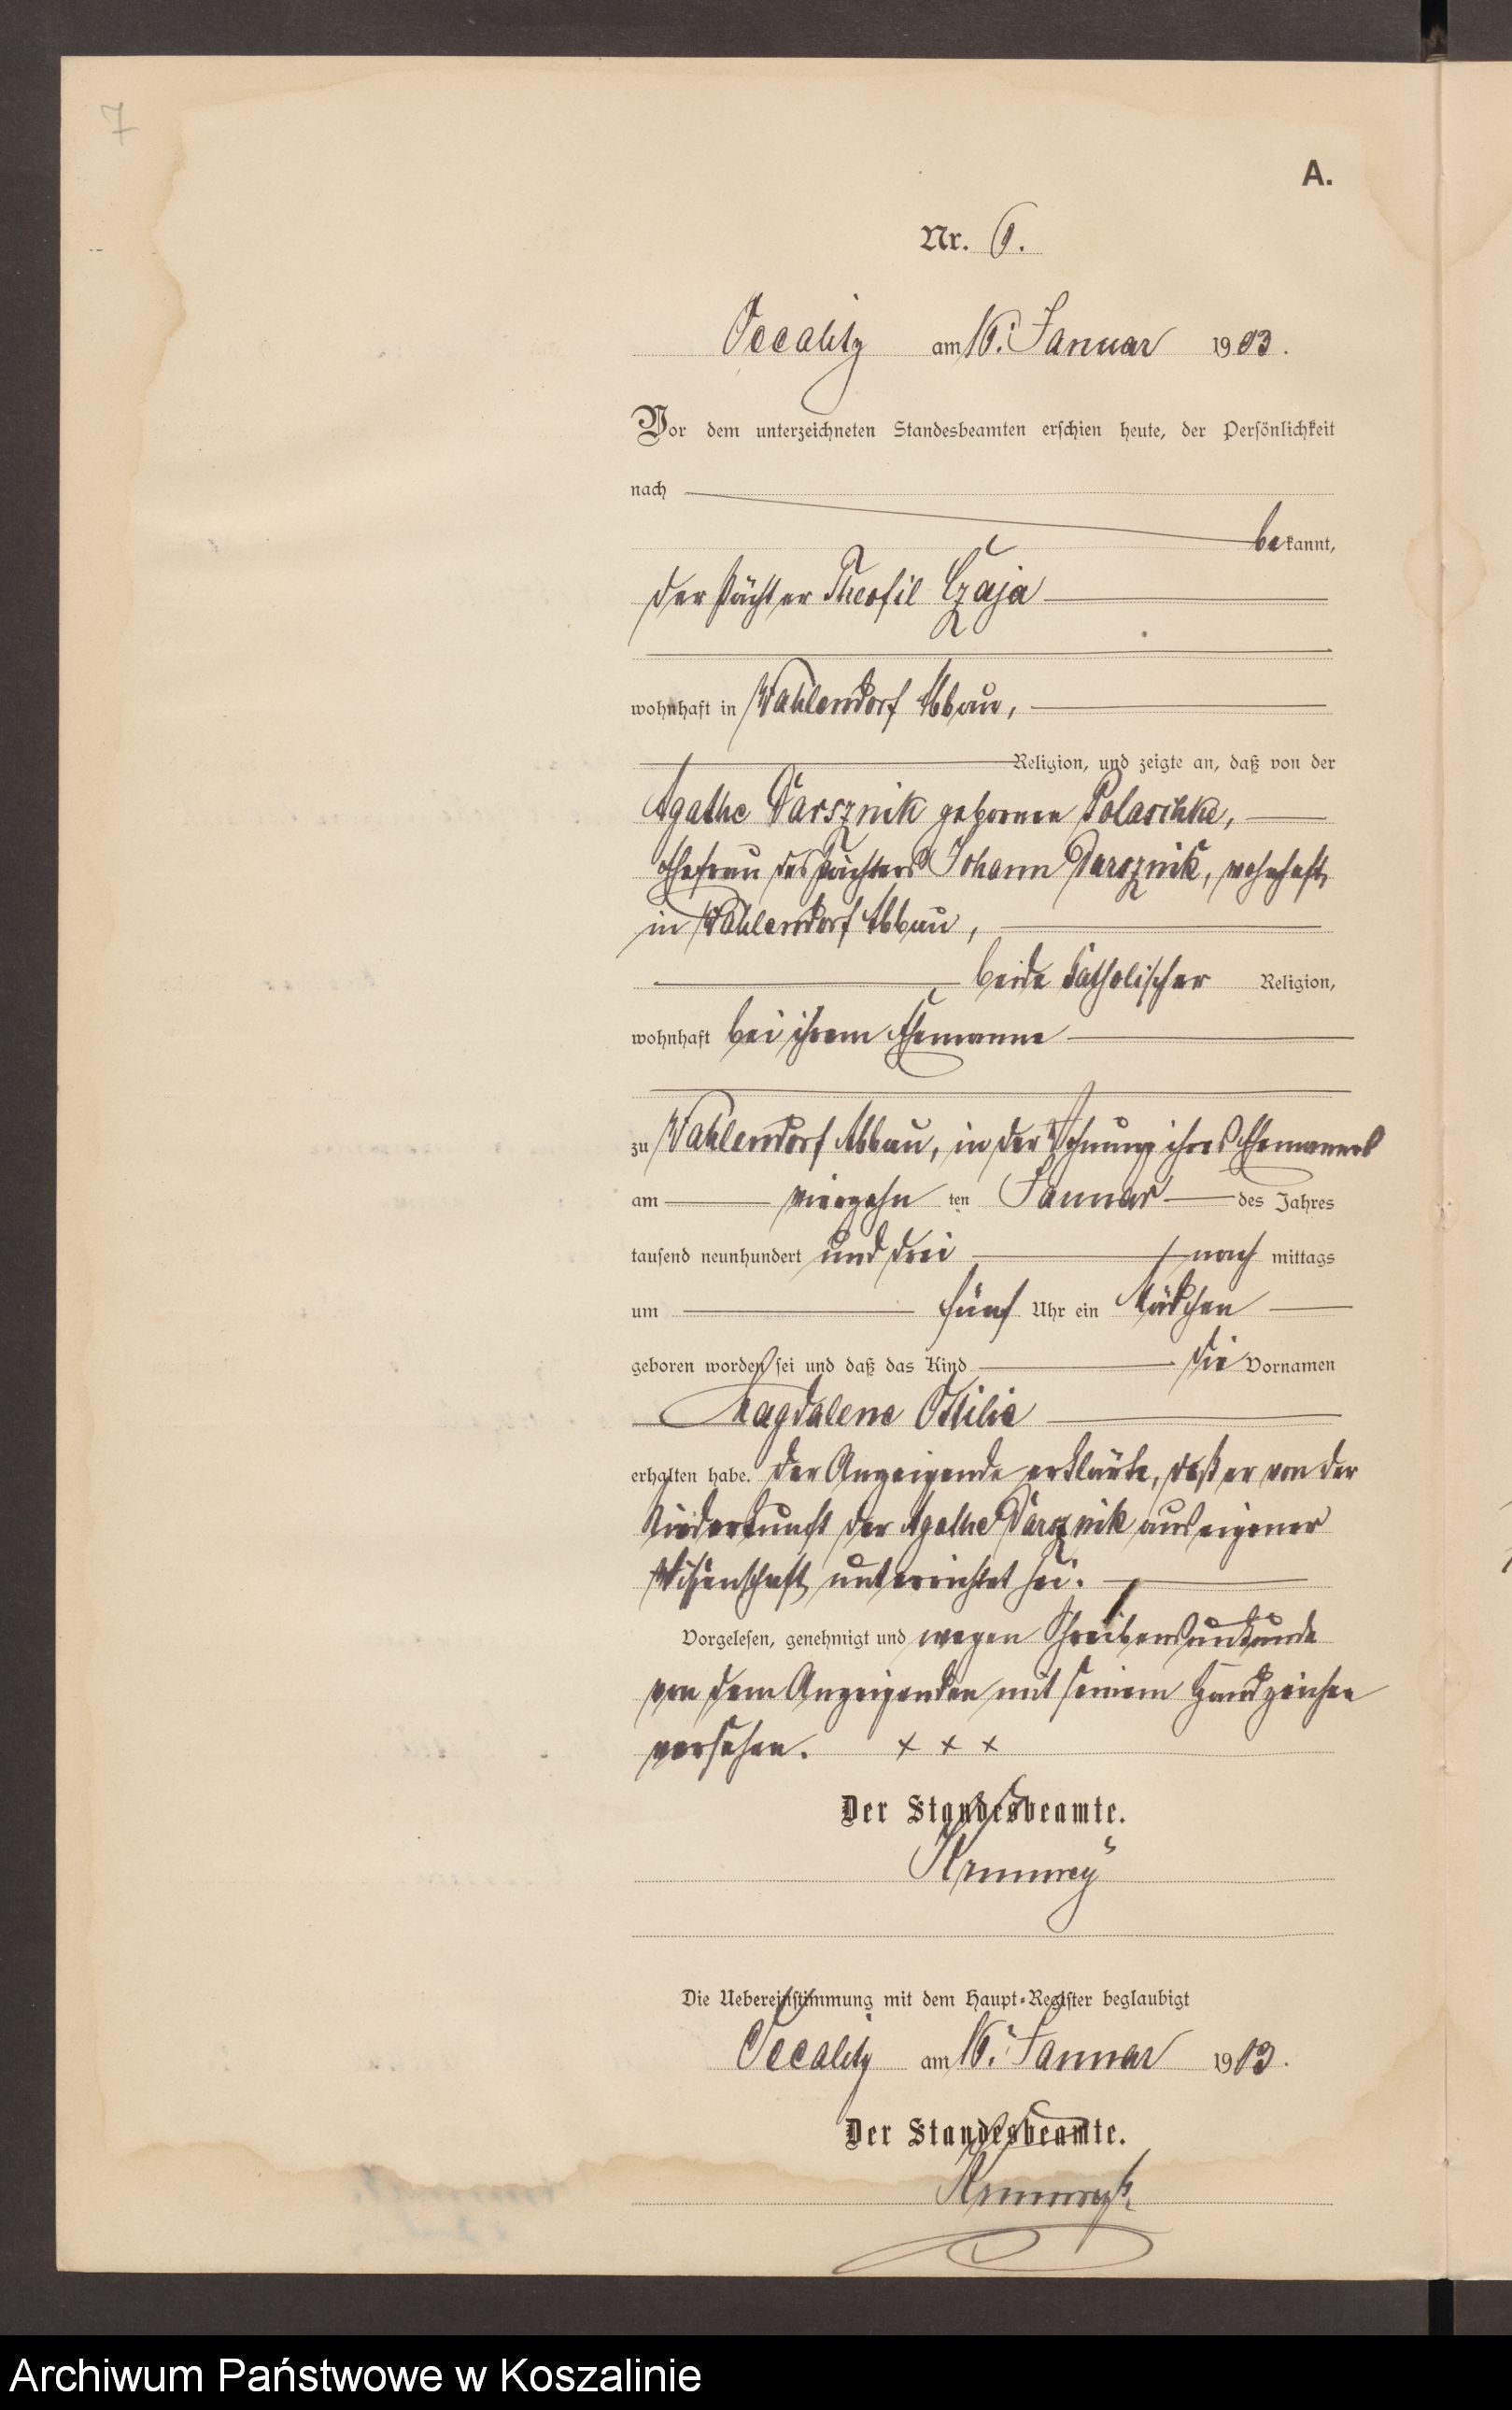 7
A.
Nr. 6.
Occalitz am 16. Januar 1903.
Vor dem unterzeichneten Standesbeamten erschien heute, der Persönlichkeit
nach
bekannt,
der Pächter Theofil Czaja
wohnhaft in Wahlendorf Abbau,
Religion, und zeigte an, daß von der
Agathe Parsznik geborene Polaschke,
Ehefrau des Pächters Johann Parsznik, wohnhaft
in Wahlendorf Abbau,
beide katholischer Religion,
wohnhaft bei ihrem Ehemanne
zu Wahlendorf Abbau, in der Wohnung ihres Ehemannes
am vierzehn ten Januar des Jahres
tausend neunhundert und drei nach mittags
um fünf Uhr ein Mädchen
geboren worden sei und daß das Kind die Vornamen
Magdalene Ottilie
erhalten habe. Der Anzeigende erklärte, daß er von der
Niederkunft der Agathe Parsznik aus eigener
Wissenschaft unterrichtet sei.
Vorgelesen, genehmigt und wegen Schreibensunkunde
von dem Anzeigenden mit seinem Handzeichen
versehen. x x x
Der Standesbeamte.
Die Uebereinstimmung mit dem Haupt-Register beglaubigt
Occalitz am 16. Januar 1903.
Der Standesbeamte.
Archiwum Państwowe w Koszalinie